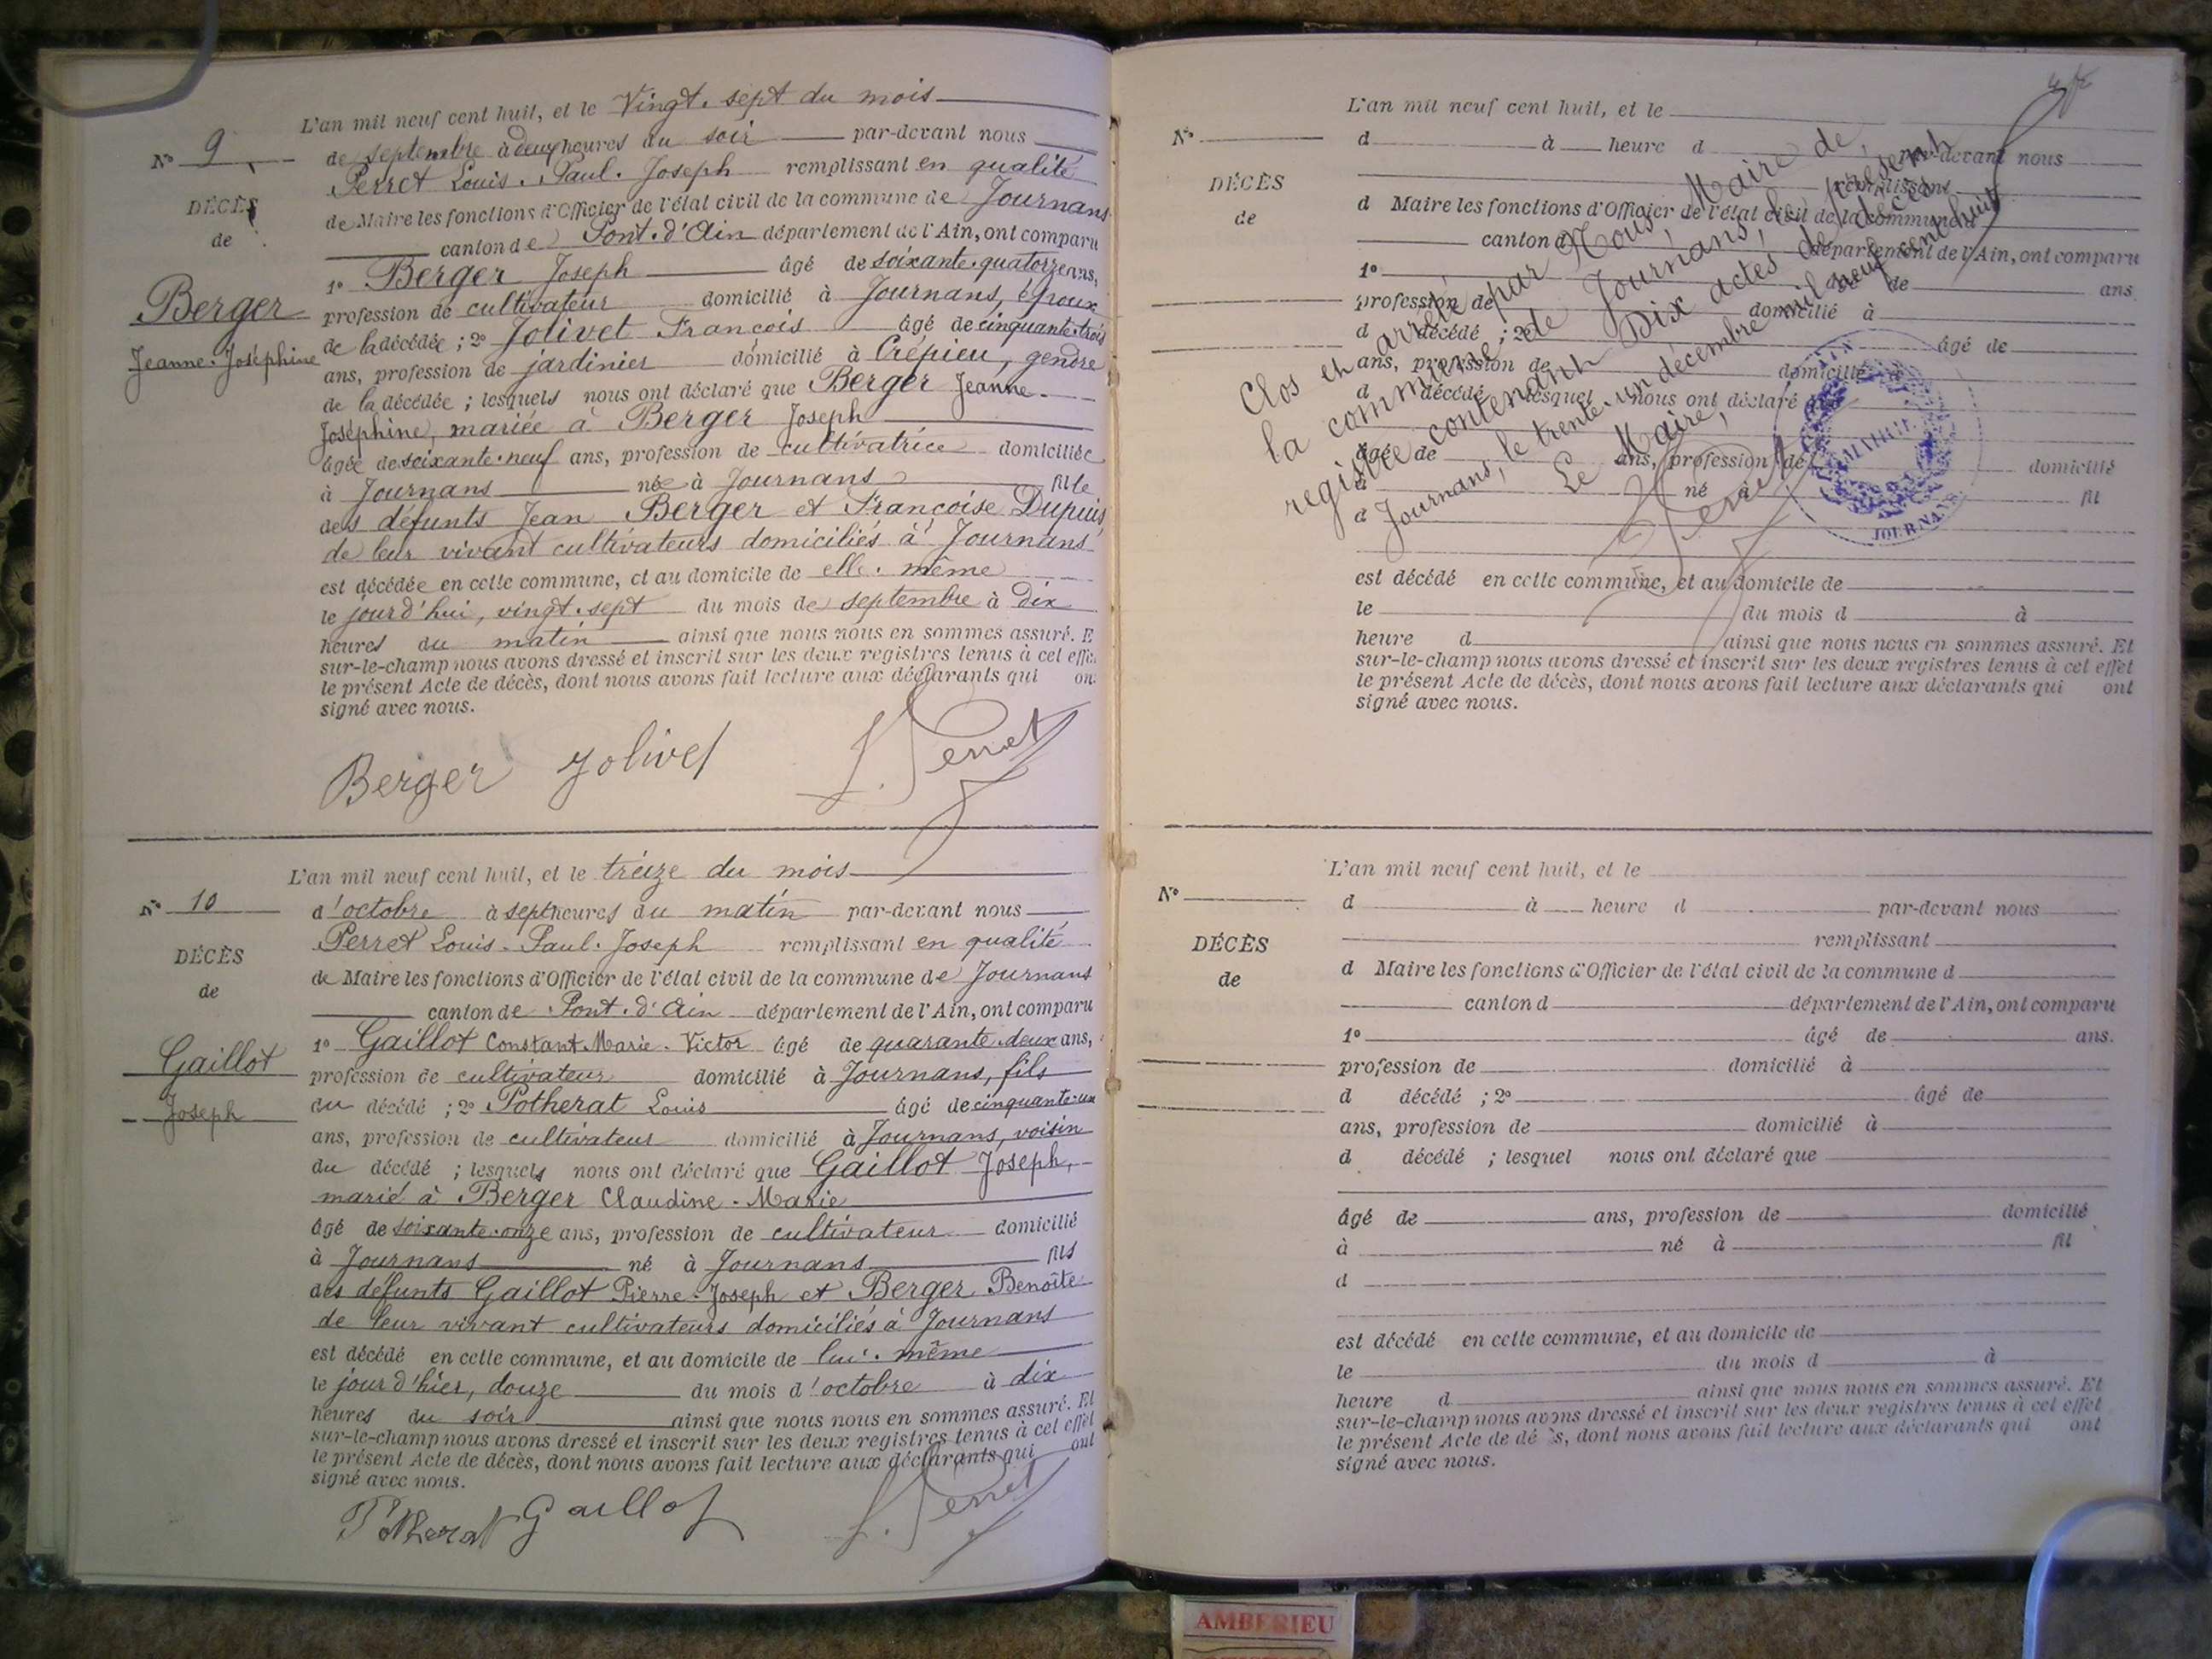 L'an mil neuf cent huit, et le Vingt. sept du mois
N° 9
de septembre à deux heures du soir par-devant nous
Perret Louis. Paul. Joseph remplissant en qualité
DÉCÈS
de Maire les fonctions d'Officier de l'état civil de la commune de Journans
de
canton de Pont. d'Ain département de l'Ain, ont comparu
1° Berger Joseph âgé de soixante. quatorze ans,
Berger
profession de cultivateur domicilié à Journans, époux
Jeanne. Joséphine
de la décédée ; 2° Jolivet François âgé de cinquante. trois
ans, profession de jardinier domicilié à Crépieu, gendre
de la décédée ; lesquels nous ont déclaré que Berger Jeanne.
Joséphine, mariée à Berger Joseph
âgée de soixante. neuf ans, profession de cultivatrice domiciliée
à Journans née à Journans fille
des défunts Jean Berger et Françoise Dupuis
de leur vivant cultivateurs domiciliés à Journans
est décédée en cette commune, et au domicile de elle. même
le jour d'hui, vingt. sept du mois de septembre à dix
heures du matin ainsi que nous nous en sommes assuré. E
sur-le-champ nous avons dressé et inscrit sur les deux registres tenus à cet effe
le présent Acte de décès, dont nous avons fait lecture aux déclarants qui on
signé avec nous.
Berger Jolivet J. Perret
L'an mil neuf cent huit, et le treize du mois
N° 10
d'octobre à sept heures du matin par-devant nous
Perret Louis. Paul. Joseph remplissant en qualité
DÉCÈS
de Maire les fonctions d'Officier de l'état civil de la commune de Journans
de
canton de Pont. d'Ain département de l'Ain, ont comparu
1° Gaillot Constant. Marie. Victor âgé de quarante. deux ans,
Gaillot
profession de cultivateur domicilié à Journans, fils
Joseph
du décédé ; 2° Potherat Louis âgé de cinquante. un
ans, profession de cultivateur domicilié à Journans, voisin
du décédé ; lesquels nous ont déclaré que Gaillot Joseph,
marié à Berger Claudine. Marie
âgé de soixante. onze ans, profession de cultivateur domicilié
à Journans né à Journans fils
des défunts Gaillot Pierre. Joseph et Berger Benoîte
de leur vivant cultivateurs domiciliés à Journans
est décédé en cette commune, et au domicile de lui. même
le jour d'hier, douze du mois d'octobre à dix
heures du soir ainsi que nous nous en sommes assuré. Et
sur-le-champ nous avons dressé et inscrit sur les deux registres tenus à cet effet
le présent Acte de décès, dont nous avons fait lecture aux déclarants qui ont
signé avec nous.
Potherat Gaillot J. Perret
L'an mil neuf cent huit, et le
N°
d à heure d par-devant nous
remplissant
DÉCÈS
d Maire les fonctions d'Officier de l'état civil de la commune d
de
canton d département de l'Ain, ont comparu
1° âgé de ans.
profession de domicilié à
d décédé ; 2° âgé de
ans, profession de domicilié à
d décédé ; lesquel nous ont déclaré que
âgé de ans, profession de domicilié
à né à fil
d
est décédé en cette commune, et au domicile de
le du mois d à
heure d ainsi que nous nous en sommes assuré. Et
sur-le-champ nous avons dressé et inscrit sur les deux registres tenus à cet effet
le présent Acte de décès, dont nous avons fait lecture aux déclarants qui ont
signé avec nous.
Clos et arrêté par Nous, Maire de
la commune de Journans, le présent
registre contenant Dix actes de décès
Journans, le trente. un décembre mil neuf cent huit
Le Maire,
J. Perret
AIN
MAIRIE
JOURNANS
L'an mil neuf cent huit, et le
N°
d à heure d par-devant nous
remplissant
DÉCÈS
d Maire les fonctions d'Officier de l'état civil de la commune d
de
canton d département de l'Ain, ont comparu
1° âgé de ans.
profession de domicilié à
d décédé ; 2° âgé de
ans, profession de domicilié à
d décédé ; lesquel nous ont déclaré que
âgé de ans, profession de domicilié
à né à fil
d
est décédé en cette commune, et au domicile de
le du mois d à
heure d ainsi que nous nous en sommes assuré. Et
sur-le-champ nous avons dressé et inscrit sur les deux registres tenus à cet effet
le présent Acte de dé s, dont nous avons fait lecture aux déclarants qui ont
signé avec nous.
AMBERIEU